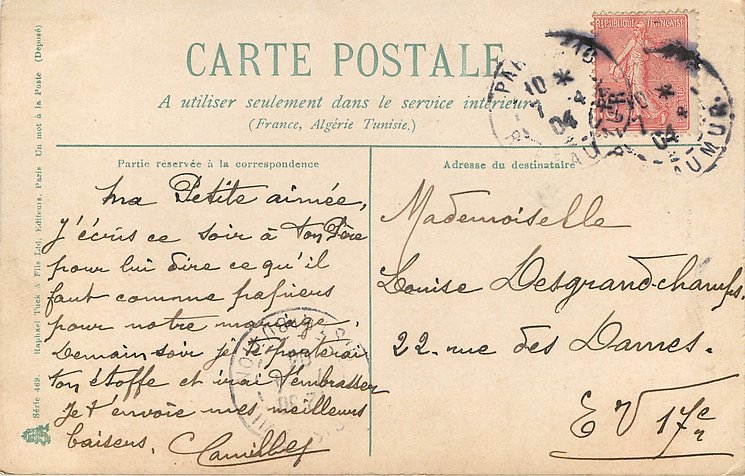 CARTE POSTALE
A utiliser seulement dans le service intérieur
(France, Algérie Tunisie.)
RÉPUBLIQUE FRANÇAISE
10
7
04
10
04
Partie réservée à la correspondance
Ma Petite aimée,
J'écris ce soir à ton Père
pour lui dire ce qu'il
faut comme papiers
pour notre mariage.
Demain soir je te porterai
ton étoffe et irai t'embrasser
Je t'envoie mes meilleurs
baisers.
Adresse du destinataire
Mademoiselle
Louise Desgrandchamps
22. rue des Dames.
EV 17e
Série 469. Raphael Tuck & Fils Ltd, Editeurs, Paris Un mot à la Poste (Deposé)